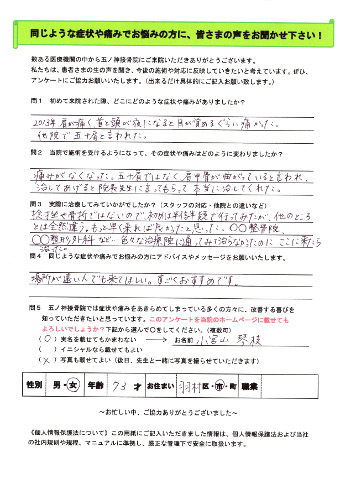 同じような症状や痛みでお悩みの方に、皆さまの声をお聞かせ下さい！
数ある医療機関の中から五ノ神接骨院にご来院いただきありがとうございます。
私たちは、患者さまの生の声を聞き、今後の施術や対応に反映していきたいと考えています。ぜひ、
アンケートにご協力お願いいたします。（出来るだけ具体的にご記入お願い致します。）
問１ 初めて来院された際、どこにどのような症状や痛みがありましたか？
2013年肩が痛く首と頭が夜になると目が覚めるぐらい痛かった。
他院で五十肩と言われた。
問２ 当院で施術を受けるようになって、その症状や痛みはどのように変わりましたか？
痛みがなくなった。五十肩ではなく肩甲骨が曲がっていると言われ、
治してあげると院長先生に言ってもらって本当に治してくれた。
問３ 実際に治療してみていかがでしたか？（スタッフの対応・他院との違いなど）
は全然違う。もっと早く来れば良かったと思った。〇〇整骨院、
〇〇整形外科など 色々な治療院に通ってみて治らなかったのに ここに来たら
治った
問４ 同じような症状や痛みでお悩みの方にアドバイスやメッセージをお願いいたします。
場所が遠い人でも来てほしい。すごくおすすめです。
問５ 五ノ神接骨院では症状や痛みをあきらめてしまっている多くの方々に、改善する喜びを
知っていただきたいと思っています。このアンケートを当院のホームページに載せても
よろしいでしょうか？下記から選んで〇をしてください。（複数可）
（〇）実名を載せてもかまわない → お名前 小宮山 琴枝
（ ）イニシャルなら載せてもよい
（×）写真も載せてよい（後日、先生と一緒に写真を撮らせていただきます）
性別 男・女 年齢 73才 お住まい 羽村 区・市・町 職業
～お忙しい中、ご協力ありがとうございました～
《個人情報保護法について》この用紙にご記入いただきました情報は、個人情報保護法および当社
の社内規則や規程、マニュアルに準拠し、厳正な管理下で安全に取扱います。